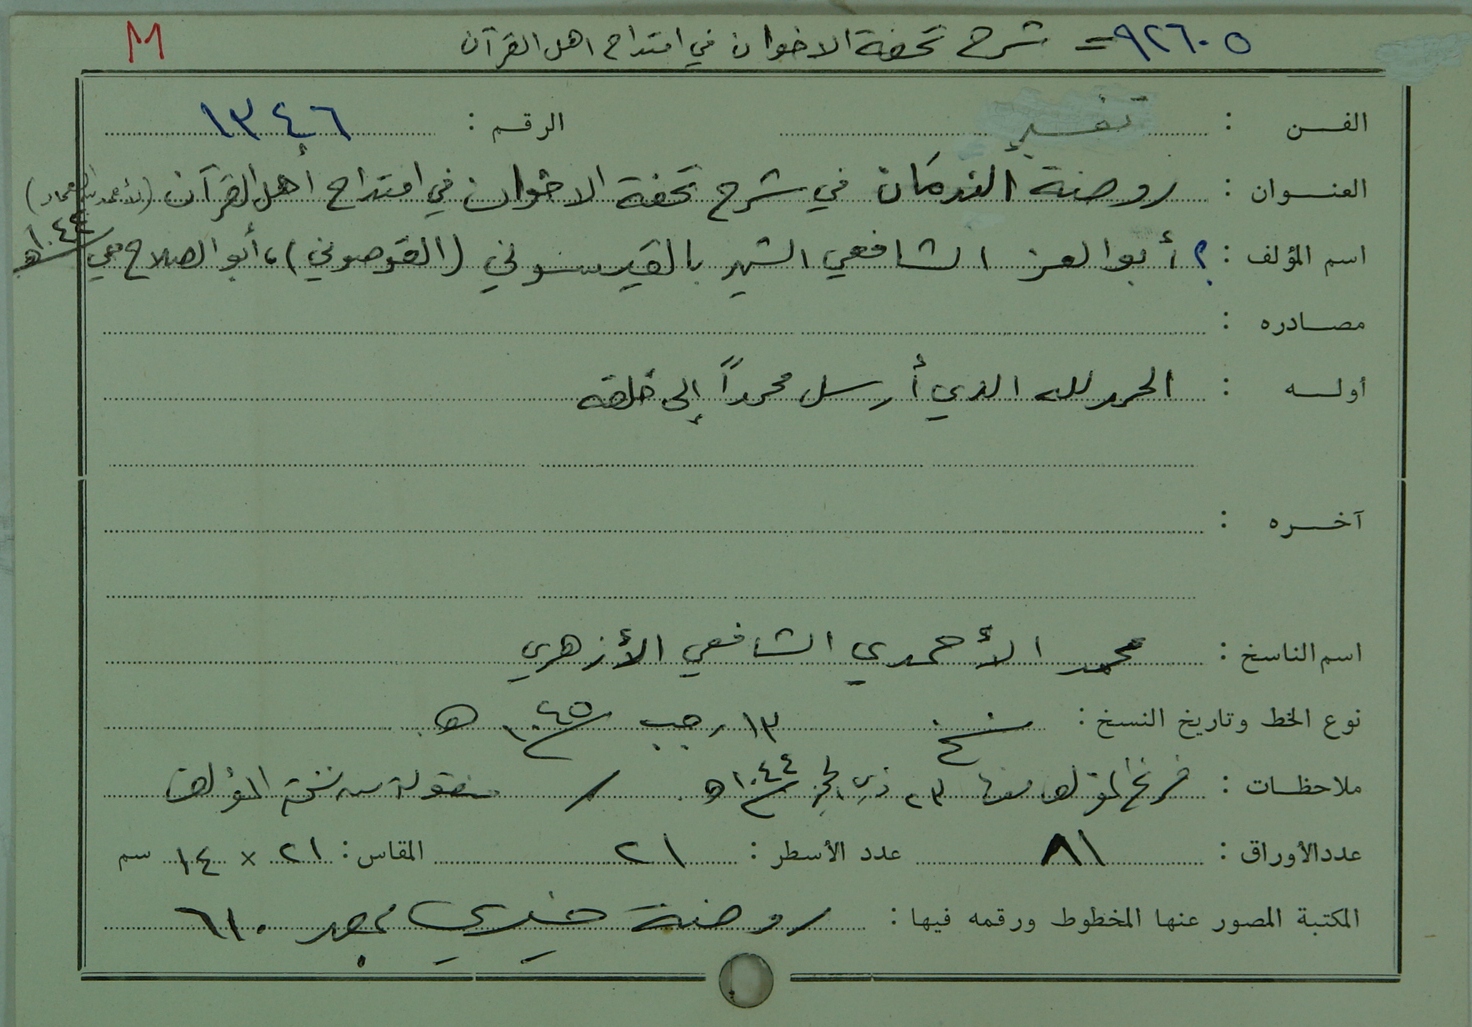 M
٩٢٦٠٥ = شرح تحفة الاخوان في امتداح اهل القرآن
الفن : تفسير الرقم : ١٣٤٦
العنوان : روضة الندمان في شرح تحفة الاخوان في امتداح أهل القرآن
اسم المؤلف : ؟ أبو العز الشافعي الشهير بالقيسوني (القوصوني)، أبو الصلاح حي ١٠٤٤هـ
مصادره :
أوله : الحمد لله الذي أرسل محمداً إلى خلقه
آخره :
اسم الناسخ : محمد الأحمدي الشافعي الأزهري
نوع الخط وتاريخ النسخ : نسخ ١٣ رجب ١٠٤٥ هـ
ملاحظات : فرغ المؤلف منها ٢٣ ذي الحجة ١٠٤٤هـ / منقولة من نسخة المؤلف
عدد الأوراق : ٨١ عدد الأسطر : ٢١ المقاس : ٢١ × ١٤ سم
المكتبة المصور عنها المخطوط ورقمه فيها : روضة خيري بمصر ٦١٠